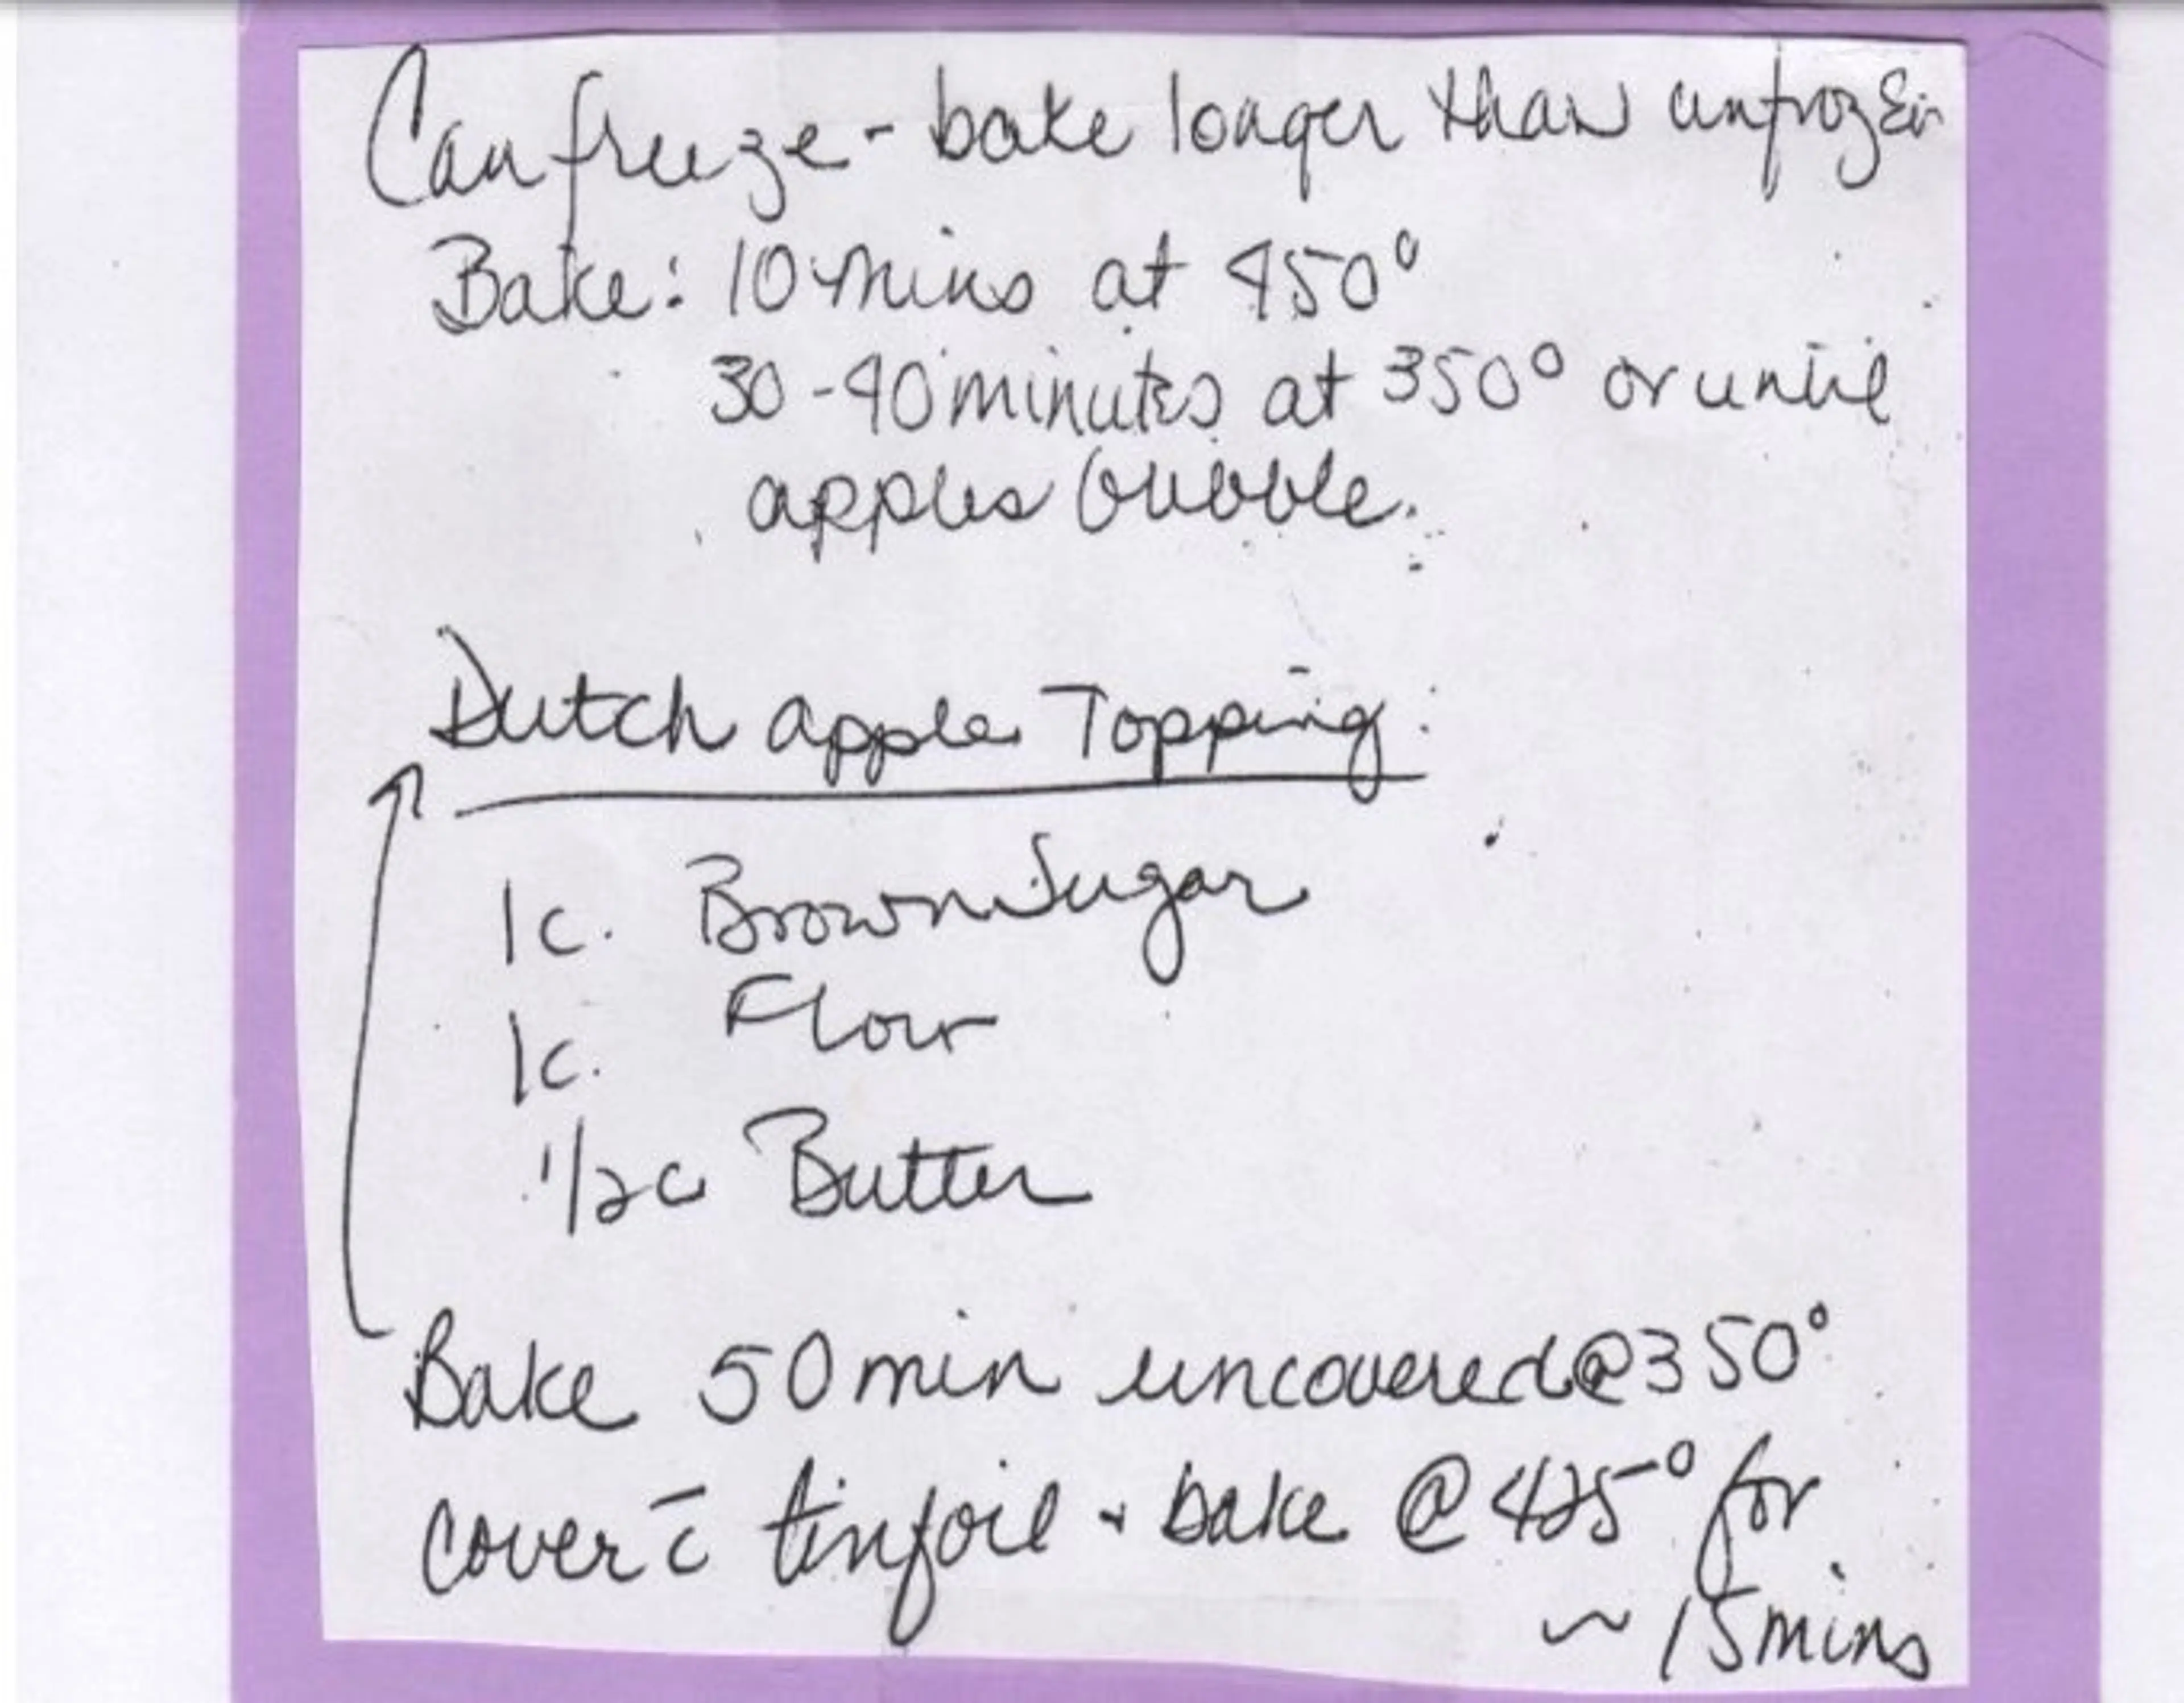 Can freeze - bake longer than unfrozen
Bake: 10 mins at 450°
30-40 minutes at 350° or until
apples bubble.
Dutch apple Topping:
1c. Brown Sugar
1c. Flour
1/2c Butter
Bake 50 min uncovered @ 350°
cover c̄ tinfoil + bake @ 425° for
~ 15 mins